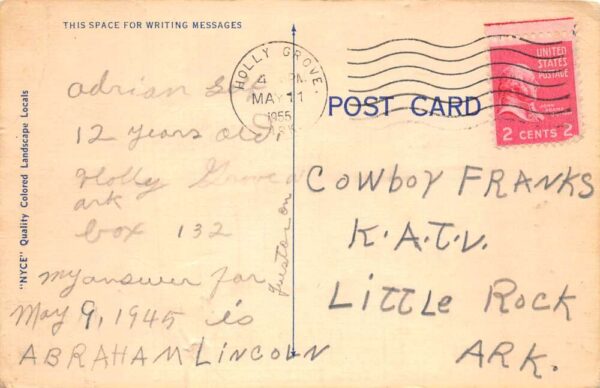 THIS SPACE FOR WRITING MESSAGES
adrian
12 years old,
Holly Grove
ark
box 132
my answer for
May 9, 1945 is
ABRAHAM LINCOLN
"NYCE" Quality Colored Landscape Locals
HOLLY GROVE.
4 PM
MAY 11
1955
ARK.
POST CARD
UNITED
STATES
POSTAGE
JOHN
2 CENTS 2
COWBOY FRANKS
K.A.T.V.
LITTLE ROCK
ARK.